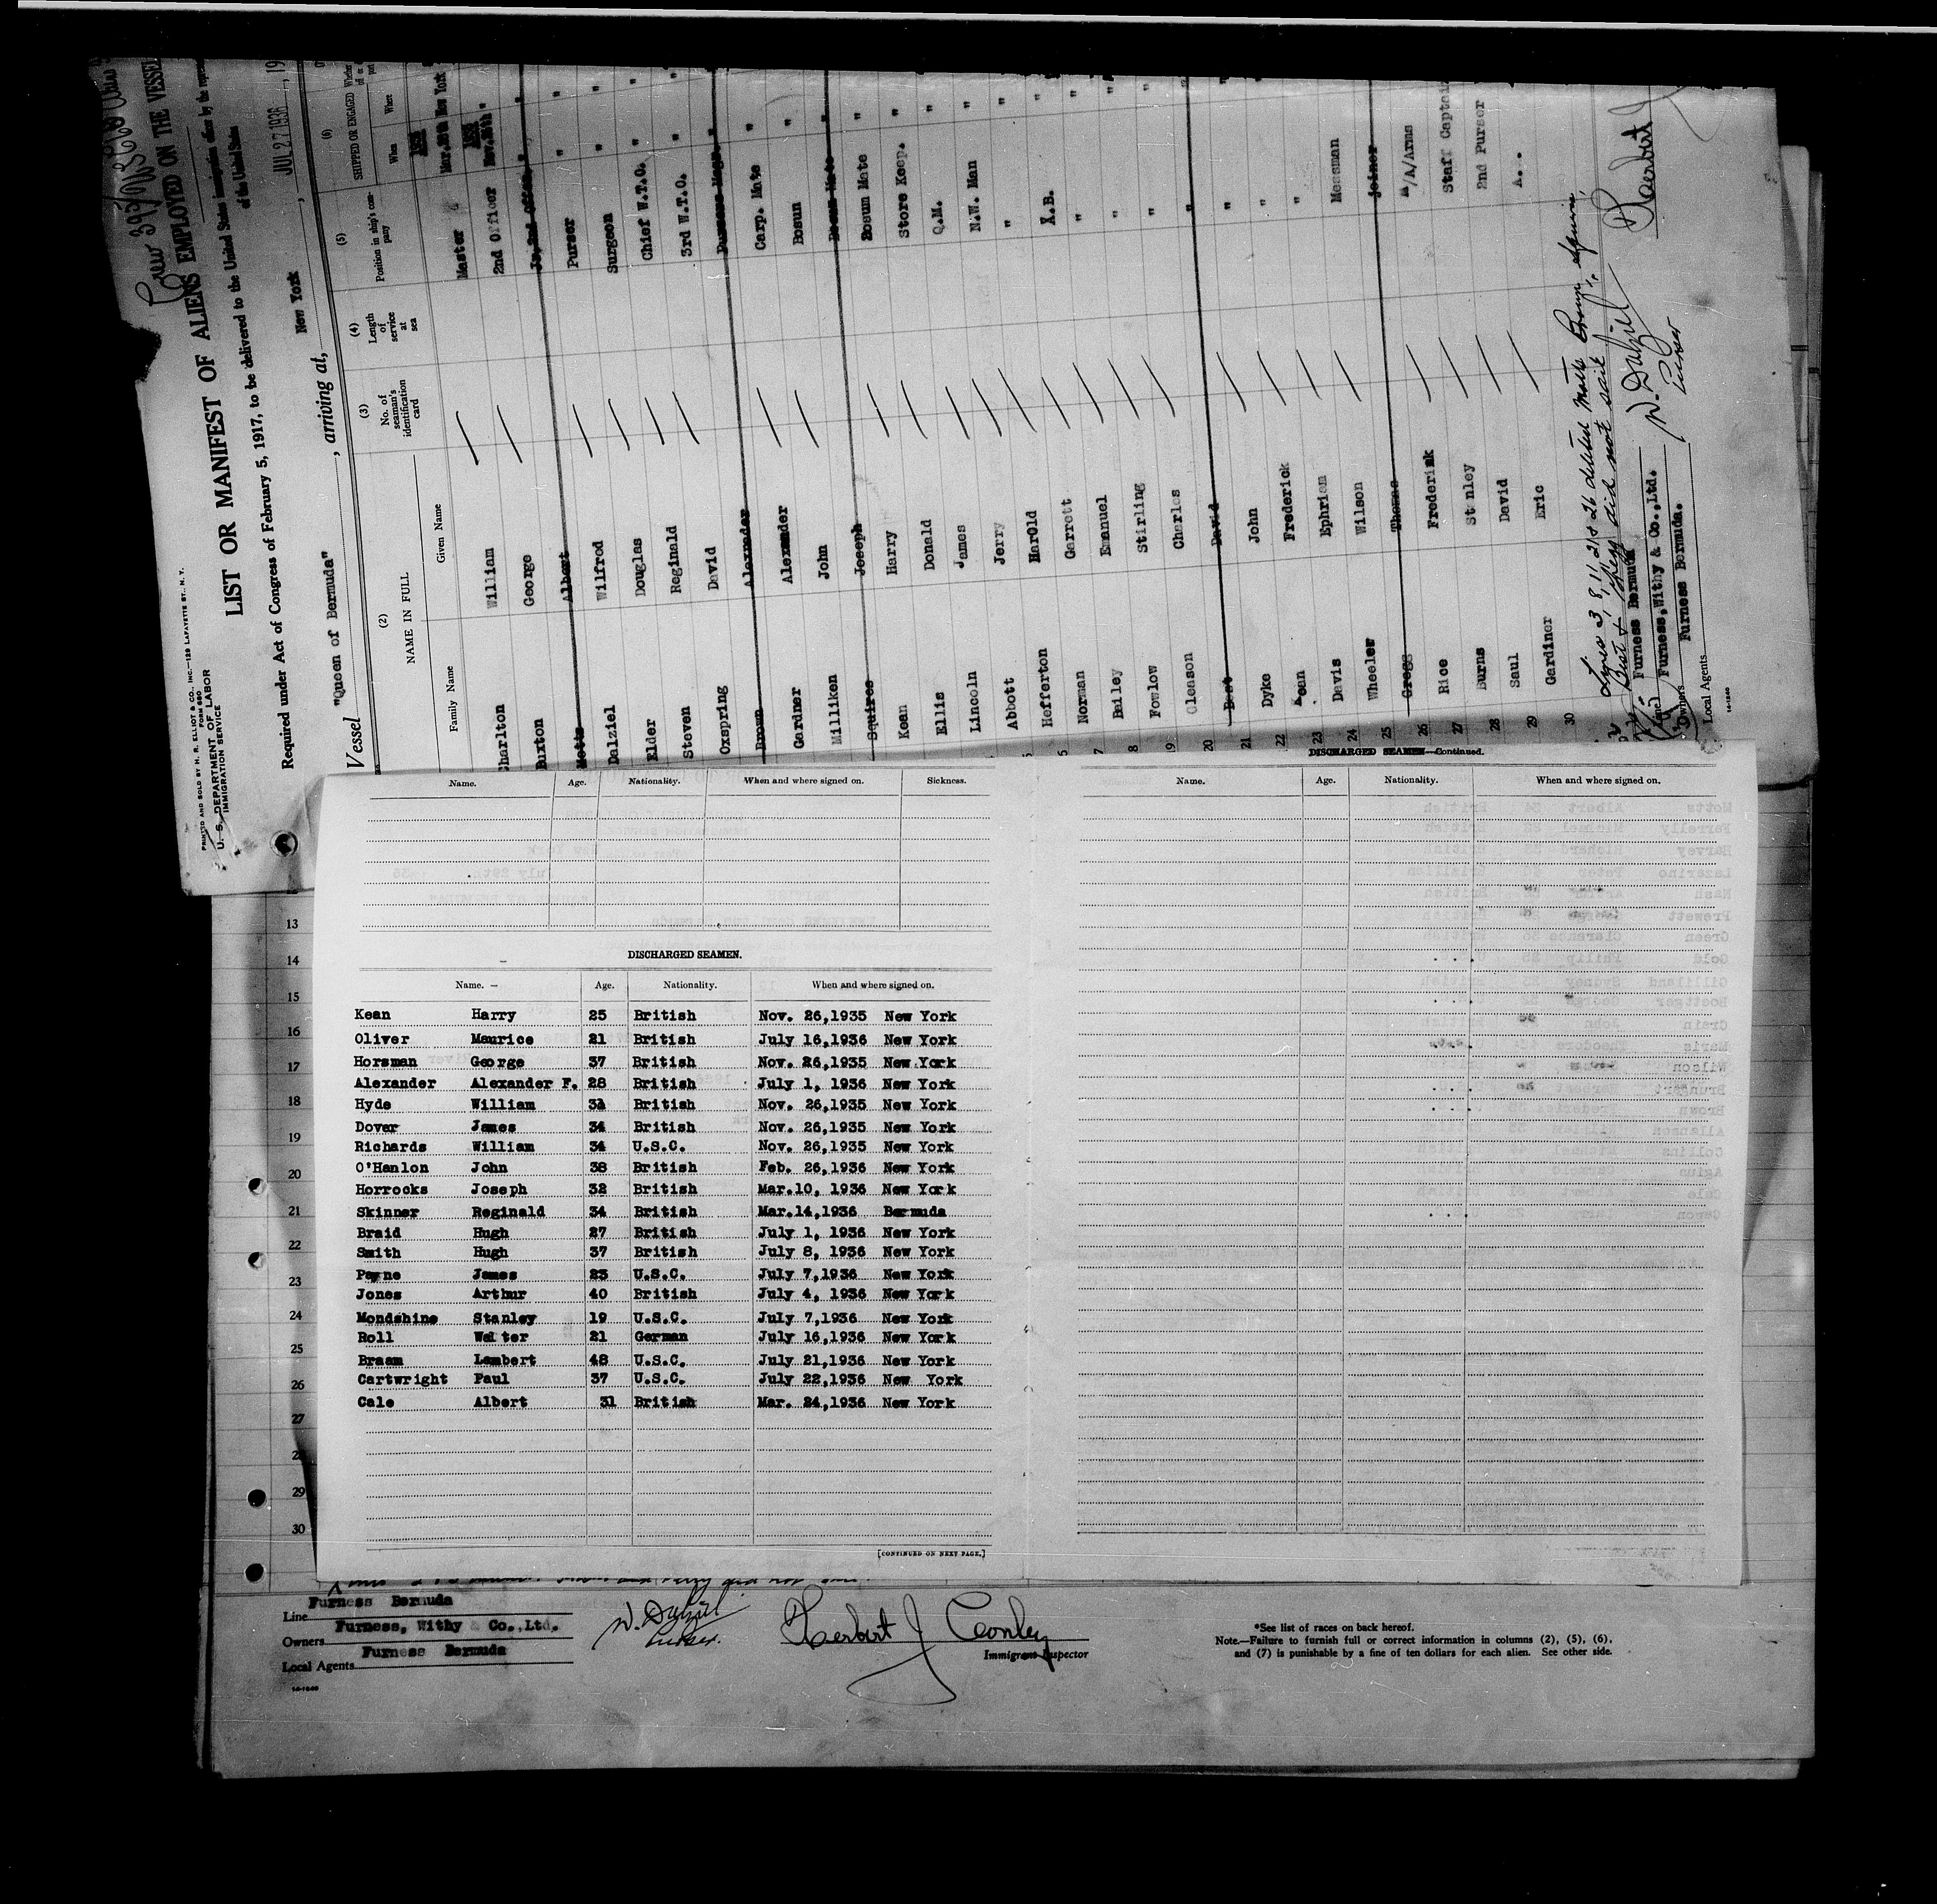 PRINTED AND SOLD BY H. R. ELLIOT & CO., INC.—129 LAFAYETTE ST., N. Y.
FORM 680
U. S. DEPARTMENT OF LABOR
IMMIGRATION SERVICE
Crew
LIST OR MANIFEST OF ALIENS EMPLOYED ON THE VESSEL
Required under Act of Congress of February 5, 1917, to be delivered to the United States immigration officer by the
of the United States
Vessel "Queen of Bermuda", arriving at, New York, JUL 27 1936, 19
(2) (3) (4) (5) (6)
NAME IN FULL No. of seaman's identification card Length of service at sea Position in ship's company SHIPPED OR ENGAGED
Family Name Given Name When Where
Charlton William Master New York
Burton George 2nd Officer "
Motts Albert "
Dalziel Wilfrod Purser "
Elder Douglas Surgeon "
Steven Reginald Chief W.T.O. "
Oxspring David 3rd W.T.O. "
Brown Alexander "
Gardner Alexander Carp. Mate "
Milliken John Bosun "
Squires Joseph Bosun Mate "
Kean Harry Bosum Mate "
Ellis Donald Store Keep. "
Lincoln James Q.M. "
Abbott Jerry N.W. Man "
Hefferton Harold " "
Norman Garrett A.B. "
Bailey Emanuel " "
Fowlow Stirling " "
Gleason Charles " "
20 Best David "
21 Dyke John "
22 Kean Frederick "
23 Davis Ephriam "
24 Wheeler Wilson Messman
25 Gregg Thomas Joiner
26 Rice Frederick M/A/Arms
27 Burns Stanley Staff Captain
28 Saul David 2nd Purser
29 Gardiner Eric
30
Lines 3, 8, 11, 21 & 26 deleted Motts Brown Squires,
Best & Gregg did not sail
Furness Bermuda
Furness,Withy & Co.,Ltd.
Owners
Furness Bermuda.
Local Agents
W. Dalziel
Purser
Herbert J
Name. Age. Nationality. When and where signed on. Sickness.
DISCHARGED SEAMEN.
Name. Age. Nationality. When and where signed on.
Kean Harry 25 British Nov. 26,1935 New York
Oliver Maurice 21 British July 16,1936 New York
Horsman George 37 British Nov. 26,1935 New York
Alexander Alexander F. 28 British July 1, 1936 New York
Hyde William British Nov. 26,1935 New York
Dover James 34 British Nov. 26,1935 New York
Richards William 34 U.S.C. Nov. 26,1935 New York
O'Hanlon John 38 British Feb. 26,1936 New York
Horrocks Joseph 32 British Mar.10, 1936 New York
Skinner Reginald 34 British Mar.14,1936 Bermuda
Braid Hugh 27 British July 1, 1936 New York
Smith Hugh 37 British July 8, 1936 New York
Payne James 23 U.S.C. July 7,1936 New York
Jones Arthur 40 British July 4, 1936 New York
Mondshine Stanley 19 U.S.C. July 7,1936 New York
Roll Walter 21 German July 16,1936 New York
Braam Lambert 48 U.S.C. July 21,1936 New York
Cartwright Paul 37 U.S.C. July 22,1936 New York
Cale Albert 31 British Mar. 24,1936 New York
[CONTINUED ON NEXT PAGE.]
DISCHARGED SEAMEN—Continued.
Name. Age. Nationality. When and where signed on.
13
14
15
16
17
18
19
20
21
22
23
24
25
26
27
28
29
30
Line Furness Bermuda
Owners Furness, Withy & Co.,Ltd.
Local Agents Furness Bermuda
14-1240
W. Dalziel
Purser.
Herbert J Conley
Immigrant Inspector
*See list of races on back hereof.
Note.—Failure to furnish full or correct information in columns (2), (5), (6),
and (7) is punishable by a fine of ten dollars for each alien. See other side.